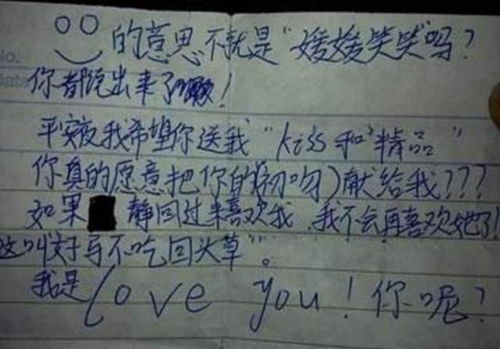 的意思不就是"媛媛笑笑"吗?
你都说出来了噢!
平安夜我希望你送我"kiss和"精品"
你真的愿意把你的(初吻)献给我???
如果 静回过来喜欢我,我不会再喜欢她了!
这叫好马不吃回头草"。
我是love you!你呢?